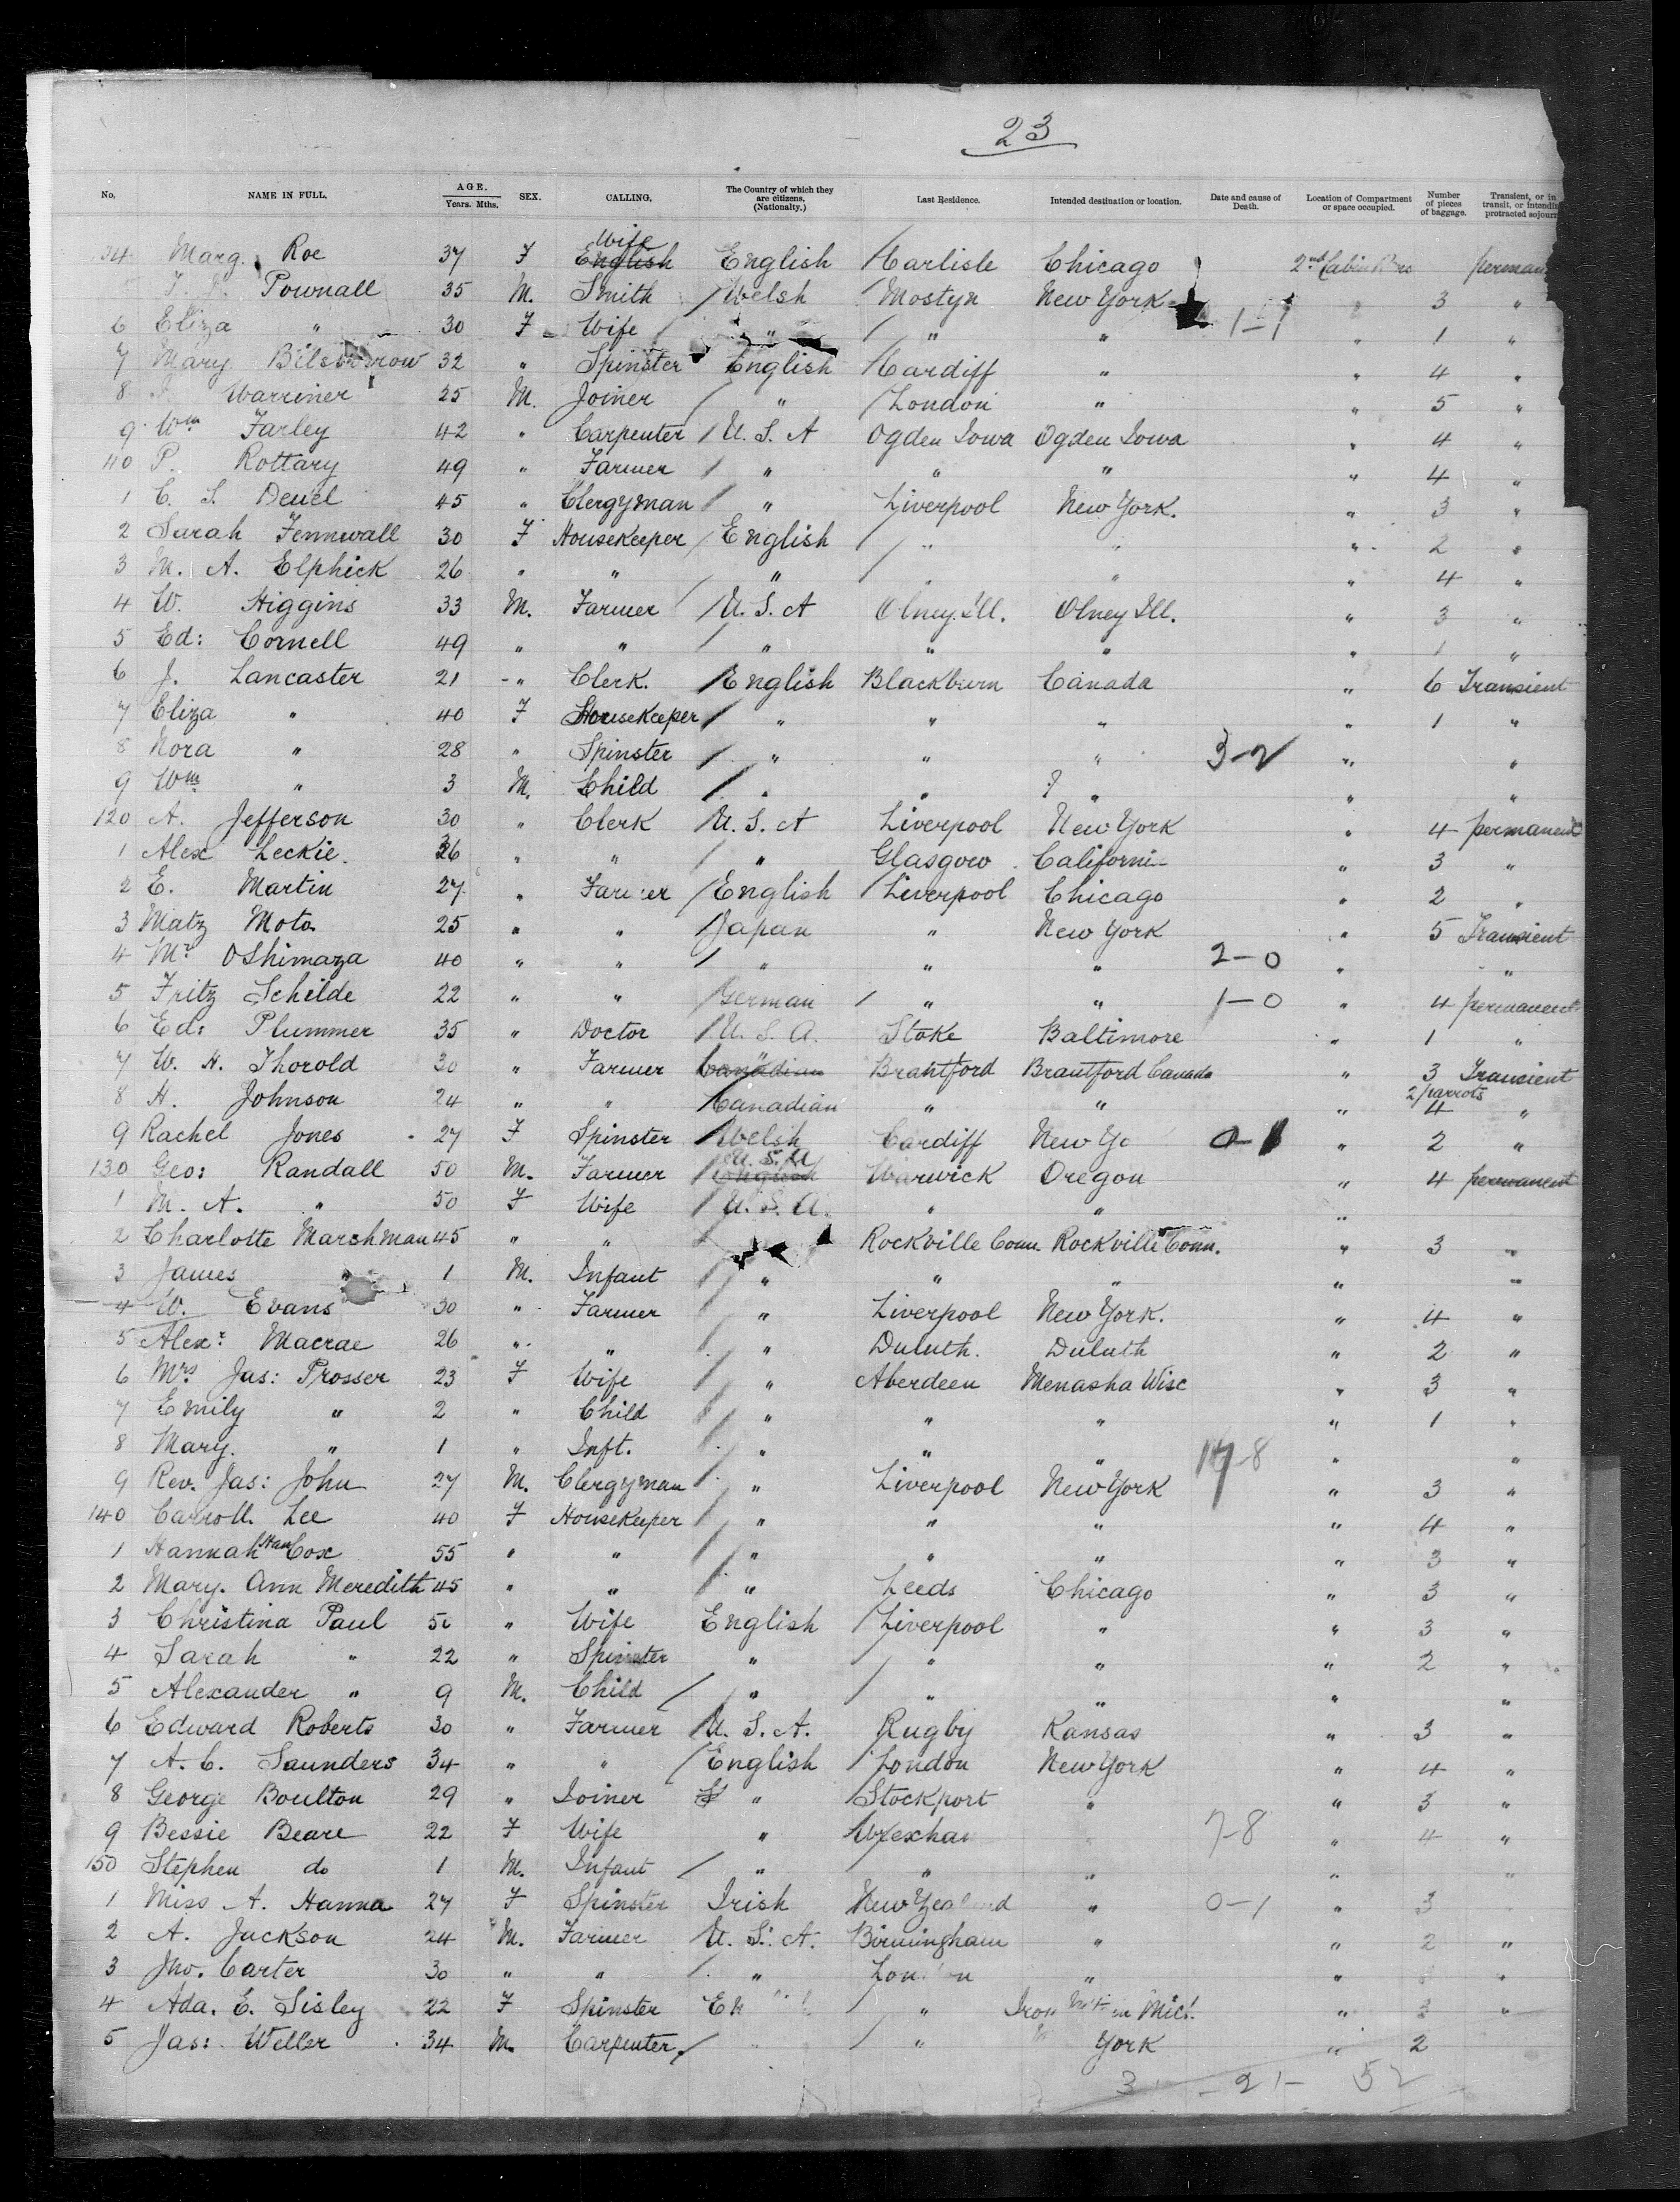 23
No. NAME IN FULL. AGE. Years. Mths. SEX. CALLING. The Country of which they are citizens. (Nationality.) Last Residence. Intended destination or location. Date and cause of Death. Location of Compartment or space occupied. Number of pieces of baggage. Transient, or in transit, or intending protracted sojourn
34 Marg. Roe 37 F English Wife English Carlisle Chicago 2nd Cabin
Pownall 35 M. Smith Welsh Mostyn New York 3 "
6 Eliza " 30 F Wife " " " 1-1 " 1 "
7 Mary Bilsborrow 32 " Spinster English Cardiff " " 4 "
8 Warriner 25 M. Joiner " London " " 5 "
9 Wm Farley 42 " Carpenter U. S. A Ogden Iowa Ogden Iowa " 4 "
40 P. Rottary 49 " Farmer " " " " 4 "
1 C. S. Deuel 45 " Clergyman " Liverpool New York. " 3 "
2 Sarah Fennwall 30 F Housekeeper English " " " 2 "
3 M. A. Elphick 26 " " " " " " 4 "
4 W. Higgins 33 M. Farmer U. S. A Olney. Ill. Olney Ill. " 3 "
5 Ed: Cornell 49 " " " " " " 1 "
6 J. Lancaster 21 " Clerk. English Blackburn Canada " 6 Transient
7 Eliza " 40 F Housekeeper " " " " 1 "
8 Nora " 28 " Spinster " " " 3-2 " "
9 Wm " 3 M. Child " " " " "
120 A. Jefferson 30 " Clerk U. S. A Liverpool New York " 4 permanent
1 Alex Leckie. 26 " " " Glasgow Californi " 3 "
2 E. Martin 27 " Farmer English Liverpool Chicago " 2 "
3 Matz Moto 25 " " Japan " New York " 5 Transient
4 Mr OShimaza 40 " " " " " 2-0 " "
5 Fritz Schilde 22 " " German " " 1-0 " 4 permanent
6 Ed: Plummer 35 " Doctor U. S. A. Stoke Baltimore " 1 "
7 W. H. Thorold 30 " Farmer Canadian " Brantford Brantford Canada " 3 Transient
8 H. Johnson 24 " " Canadian " " " 2/parrots 4 "
9 Rachel Jones 27 F Spinster Welsh Cardiff New Yo 0-1 " 2 "
130 Geo: Randall 50 M. Farmer English U. S. A Warwick Oregon " 4 permanent
1 M. A. " 50 F Wife U. S. A. " " "
2 Charlotte Marchman 45 " " Rockville Conn. Rockville Conn. " 3 "
3 James " 1 M. Infant " " " " "
4 W. Evans 30 " Farmer " Liverpool New York. " 4 "
5 Alexr Macrae 26 " " " Duluth. Duluth " 2 "
6 Mrs Jas: Prosser 23 F Wife " Aberdeen Menasha Wisc " 3 "
7 Emily " 2 " Child " " " " 1 "
8 Mary. " 1 " Inft. " " " 17-8 " "
9 Rev. Jas: John 27 M. Clergyman " Liverpool New York " 3 "
140 Carroll. Lee 40 F Housekeeper " " " " 4 "
1 Hannah Cox 55 " " " " " " 3 "
2 Mary. Ann Meredith 45 " " " Leeds Chicago " 3 "
3 Christina Paul " Wife English Liverpool " " 3 "
4 Sarah " 22 " Spinster " " " " 2 "
5 Alexander " 9 M. Child " " " " "
6 Edward Roberts 30 " Farmer U. S. A. Rugby Kansas " 3 "
7 A. C. Saunders 34 " " English London New York " 4 "
8 George Boulton 29 " Joiner " Stockport " " 3 "
9 Bessie Beare 22 F Wife " Wrexha 7-8 " 4 "
150 Stephen do 1 M. Infant " " " " "
1 Miss A. Hanna 27 F Spinster Irish New Zealand " 0-1 " 3
2 A. Jackson 24 M. Farmer U. S. A. Birmingham " " 2 "
3 Jno. Carter 30 " " " London " " "
4 Ada. E. Sisley 22 F Spinster " Iron Mich. " 3 "
5 Jas: Weller 34 M. Carpenter " York " 2
3 - 21 - 52